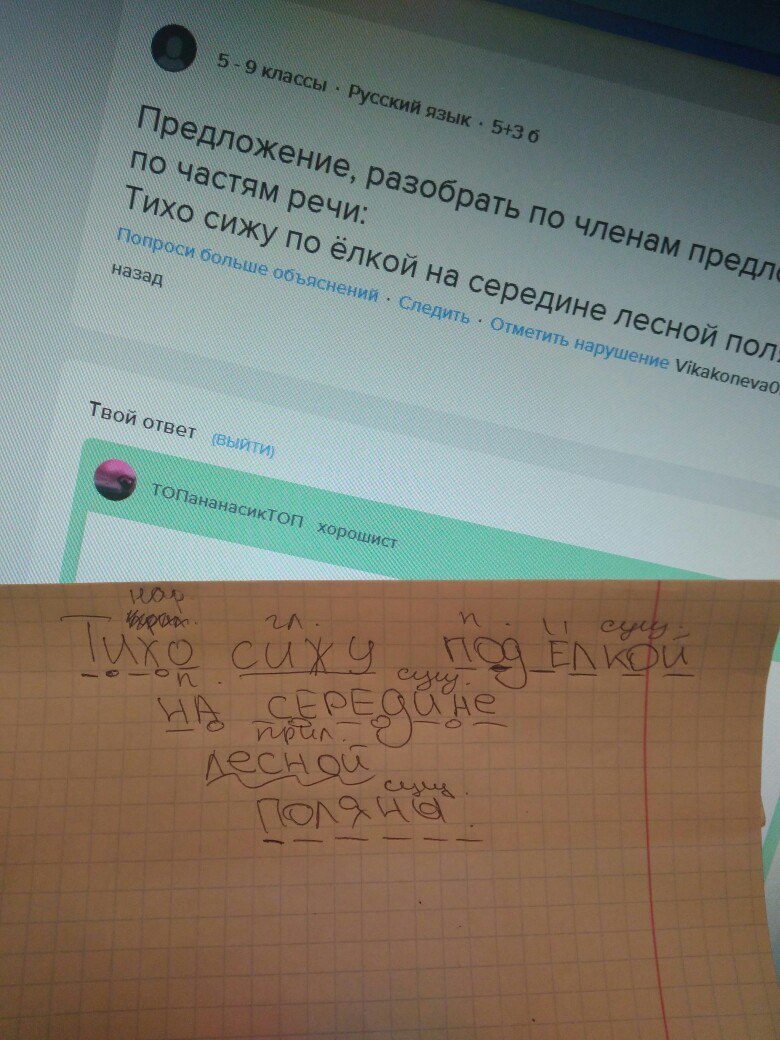 5 - 9 классы · Русский язык · 5+3 б
Предложение, разобрать по членам предло
по частям речи:
Тихо сижу по ёлкой на середине лесной пол
Попроси больше объяснений · Следить · Отметить нарушение Vikakoneva0
назад
Твой ответ (ВЫЙТИ)
ТОПананасикТОП хорошист
нар
гл. п. сущ.
Тихо сижу под Ёлкой
п. сущ.
на середине
прил.
лесной
сущ.
поляна.